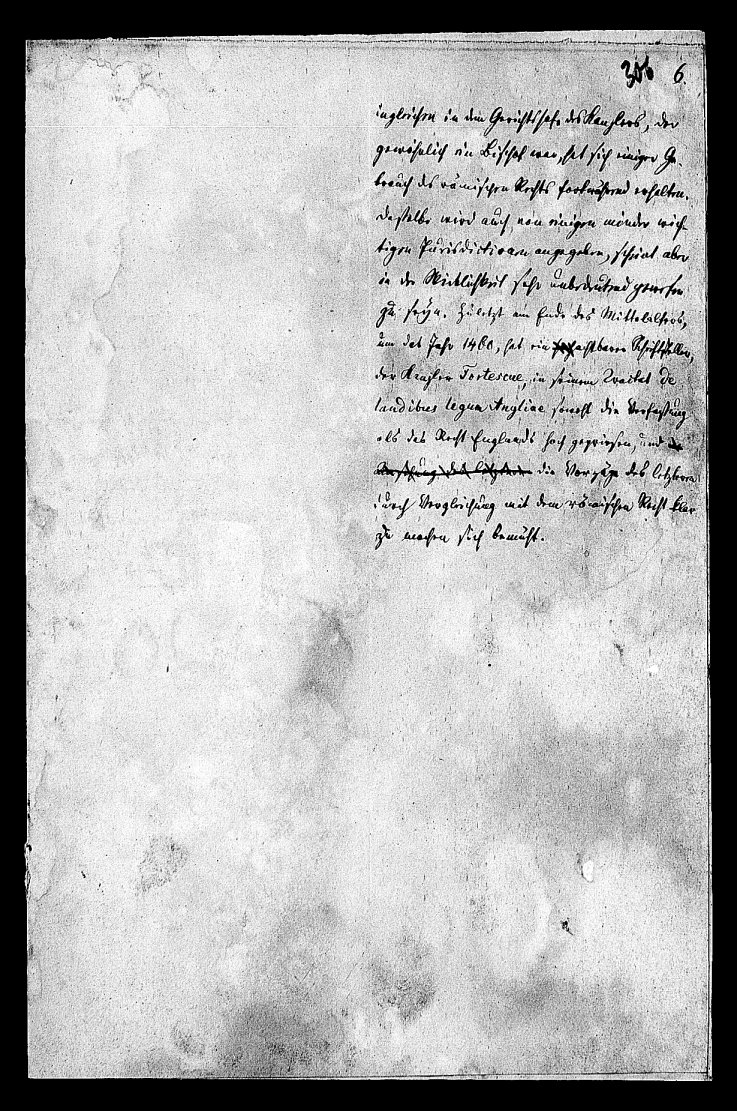 306 6.
ingleichen in dem Gerichtshofe des Kanzlers, der
gewöhnlich ein Bischof war, hat sich einiger Ge-
brauch des römischen Rechts fortwährend erhalten.
Dasselbe wird auch von einigen minder wich-
tigen Jurisdictionen angegeben, scheint aber
in der Wirklichkeit sehr unbedeutend gewesen
zu seyn. Zuletzt am Ende des Mittelalters,
um das Jahr 1460, hat ein achtbarer Schriftsteller,
der Kanzler Fortescue, in seinem Tractat De
laudibus legum Angliae sowohl die Verfassung
als das Recht Englands hoch gepriesen, und
die Vorzüge des letzteren
durch Vergleichung mit dem römischen Recht klar
zu machen sich bemüht.